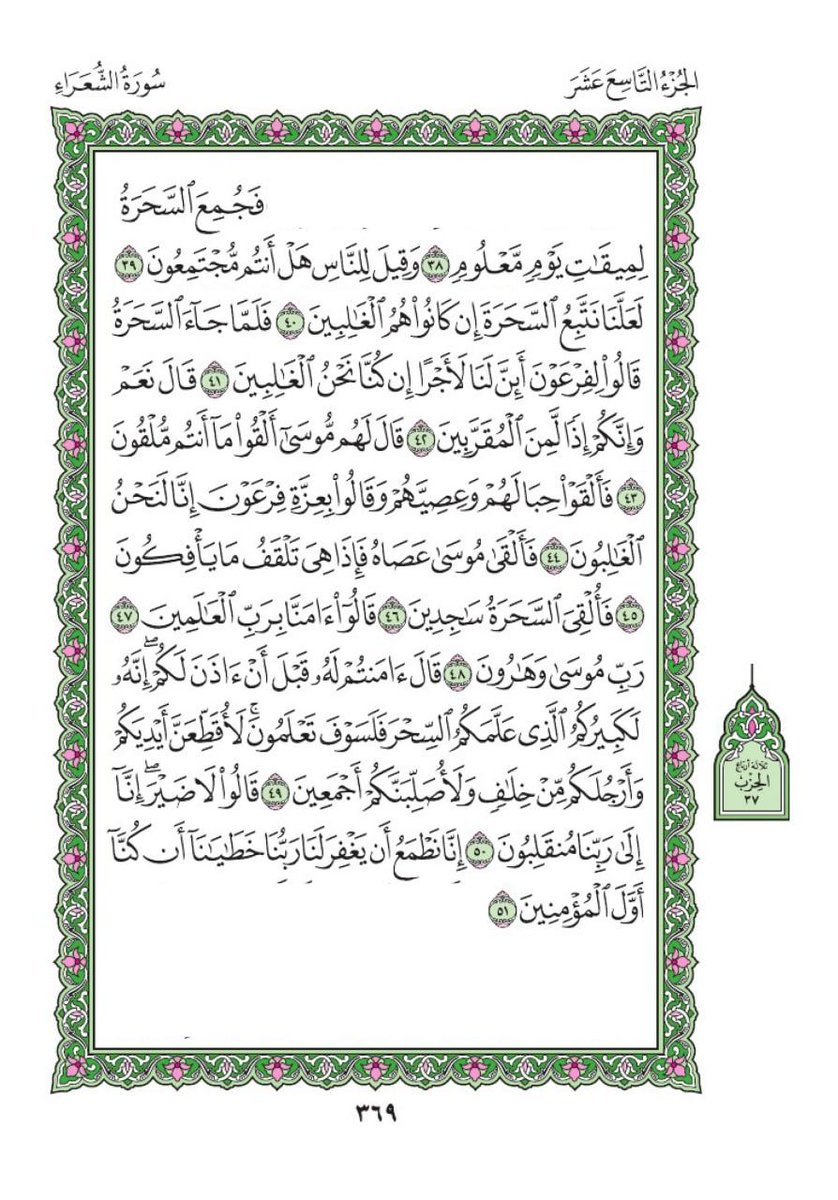 الجُزْءُ التَّاسِعَ عَشَرَ
سُورَةُ الشُّعَرَاءِ
فَجُمِعَ ٱلسَّحَرَةُ
لِمِيقَٰتِ يَوۡمٖ مَّعۡلُومٖ ٣٨ وَقِيلَ لِلنَّاسِ هَلۡ أَنتُم مُّجۡتَمِعُونَ ٣٩
لَعَلَّنَا نَتَّبِعُ ٱلسَّحَرَةَ إِن كَانُواْ هُمُ ٱلۡغَٰلِبِينَ ٤٠ فَلَمَّا جَآءَ ٱلسَّحَرَةُ
قَالُواْ لِفِرۡعَوۡنَ أَئِنَّ لَنَا لَأَجۡرًا إِن كُنَّا نَحۡنُ ٱلۡغَٰلِبِينَ ٤١ قَالَ نَعَمۡ
وَإِنَّكُمۡ إِذٗا لَّمِنَ ٱلۡمُقَرَّبِينَ ٤٢ قَالَ لَهُم مُّوسَىٰٓ أَلۡقُواْ مَآ أَنتُم مُّلۡقُونَ
٤٣ فَأَلۡقَوۡاْ حِبَالَهُمۡ وَعِصِيَّهُمۡ وَقَالُواْ بِعِزَّةِ فِرۡعَوۡنَ إِنَّا لَنَحۡنُ
ٱلۡغَٰلِبُونَ ٤٤ فَأَلۡقَىٰ مُوسَىٰ عَصَاهُ فَإِذَا هِيَ تَلۡقَفُ مَا يَأۡفِكُونَ
٤٥ فَأُلۡقِيَ ٱلسَّحَرَةُ سَٰجِدِينَ ٤٦ قَالُوٓاْ ءَامَنَّا بِرَبِّ ٱلۡعَٰلَمِينَ ٤٧
رَبِّ مُوسَىٰ وَهَٰرُونَ ٤٨ قَالَ ءَامَنتُمۡ لَهُۥ قَبۡلَ أَنۡ ءَاذَنَ لَكُمۡۖ إِنَّهُۥ
لَكَبِيرُكُمُ ٱلَّذِي عَلَّمَكُمُ ٱلسِّحۡرَ فَلَسَوۡفَ تَعۡلَمُونَۚ لَأُقَطِّعَنَّ أَيۡدِيَكُمۡ
وَأَرۡجُلَكُم مِّنۡ خِلَٰفٖ وَلَأُصَلِّبَنَّكُمۡ أَجۡمَعِينَ ٤٩ قَالُواْ لَا ضَيۡرَۖ إِنَّآ
إِلَىٰ رَبِّنَا مُنقَلِبُونَ ٥٠ إِنَّا نَطۡمَعُ أَن يَغۡفِرَ لَنَا رَبُّنَا خَطَٰيَٰنَآ أَن كُنَّآ
أَوَّلَ ٱلۡمُؤۡمِنِينَ ٥١
ثلاثة أرباع
الحزب
٣٧
٣٦٩